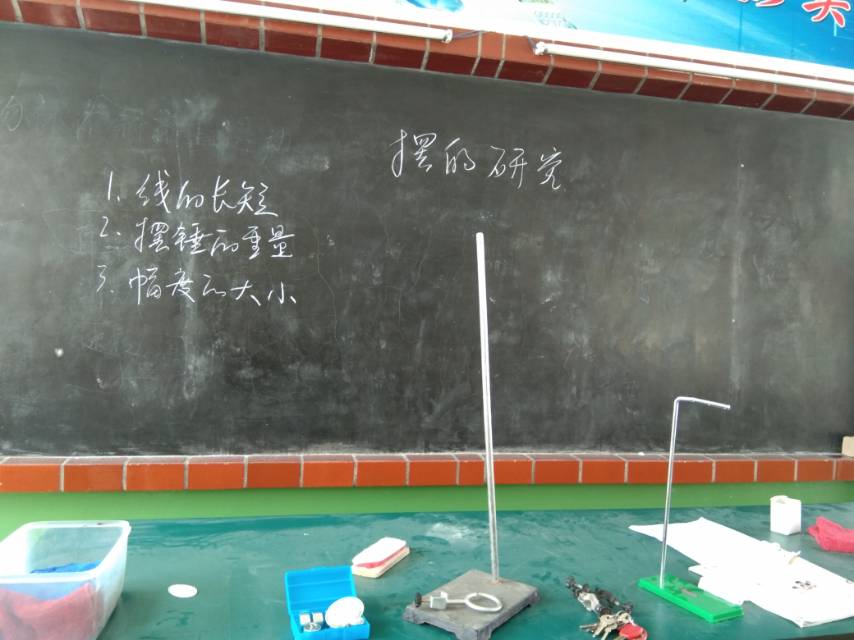 摆的研究
1. 线的长短
2. 摆锤的重量
3. 幅度的大小